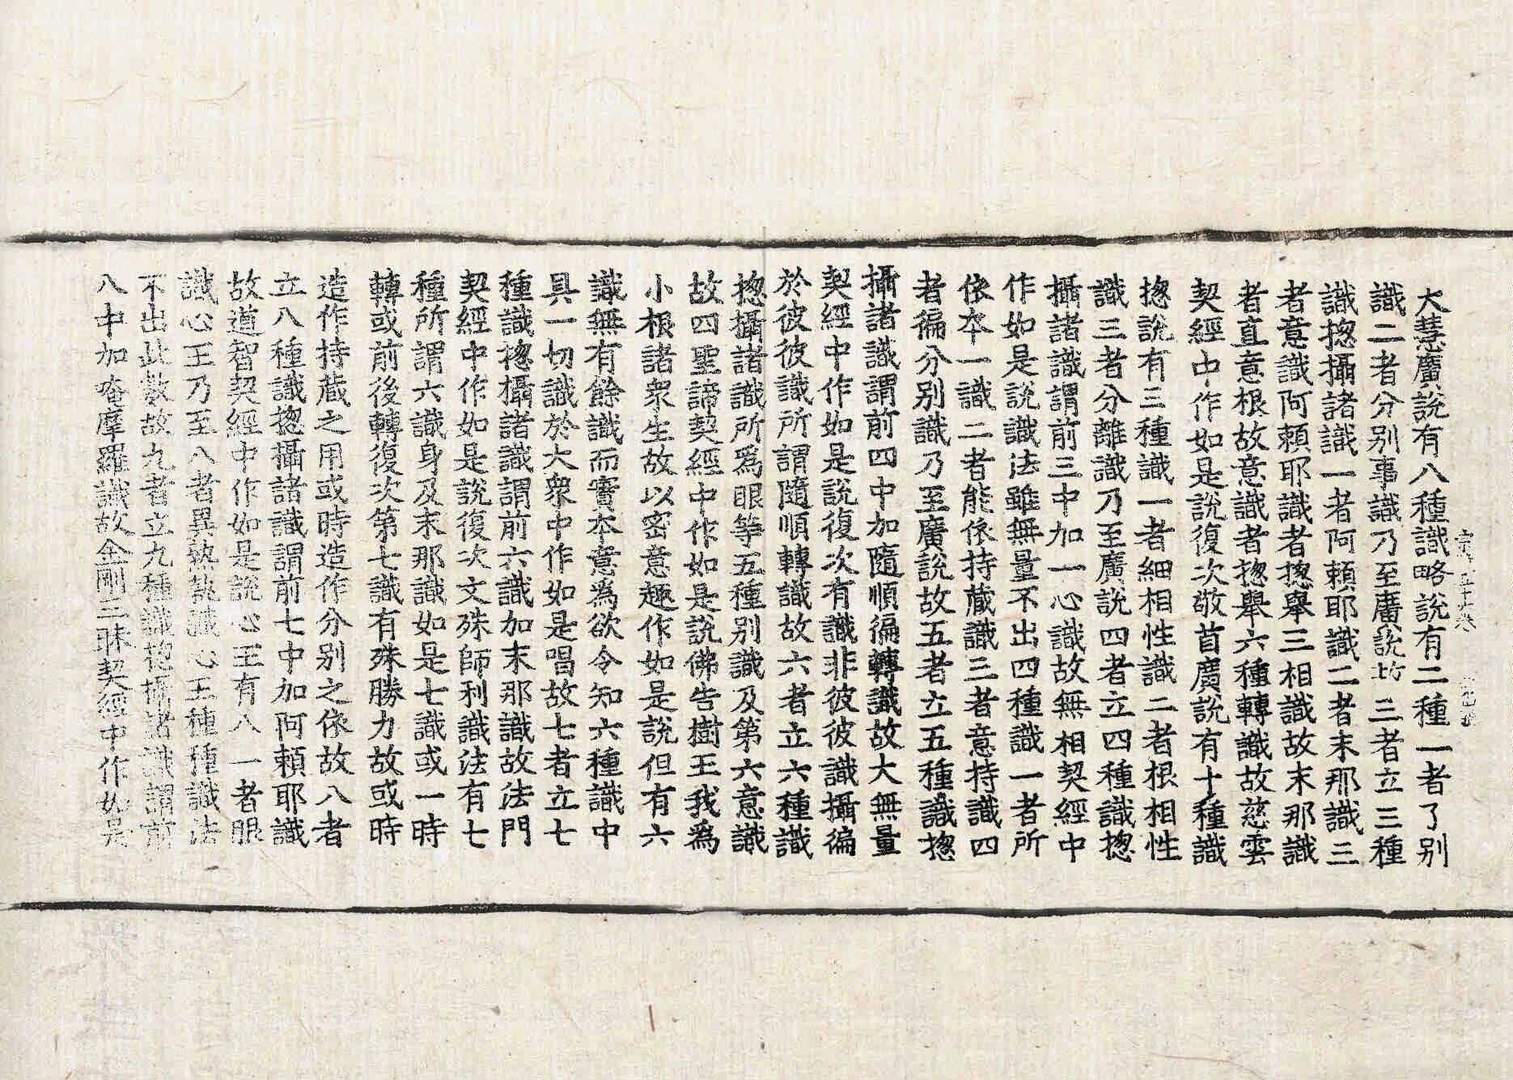 大慧廣說有八種識略說有二種一者了别
識二者分别事識乃至廣說故三者立三種
識揔攝諸識一者阿頼耶識二者末那識三
者意識阿頼耶識者揔舉三相識故末那識
者直意根故意識者揔舉六種轉識故慈雲
契經中作如是說復次敬首廣說有十種識
揔說有三種識一者細相性識二者根相性
識三者分離識乃至廣說四者立四種識揔
攝諸識謂前三中加一心識故無相契經中
作如是說識法雖無量不出四種識一者所
依夲一識二者能依持蔵識三者意持識四
者徧分别識乃至廣說故五者立五種識揔
攝諸識謂前四中加隨順徧轉識故大無量
契經中作如是說復次有識非彼彼識攝徧
於彼彼識所謂隨順轉識故六者立六種識
揔攝諸識所爲眼等五種别識及第六意識
故四聖諦契經中作如是說佛告樹王我爲
小根諸衆生故以密意趣作如是說但有六
識無有餘識而實夲意爲欲令知六種識中
具一切識於大衆中作如是唱故七者立七
種識揔攝諸識謂前六識加末那識故法門
契經中作如是說復次文殊師利識法有七
種所謂六識身及末那識如是七識或一時
轉或前後轉復次第七識有殊勝力故或時
造作持蔵之用或時造作分别之依故八者
立八種識揔攝諸識謂前七中加阿頼耶識
故道智契經中作如是說心王有八一者眼
識心王乃至八者異熟執識心王種種識法
不出此數故九者立九種識揔攝諸識謂前
八中加唵摩羅識故金剛三昧契經中作如是